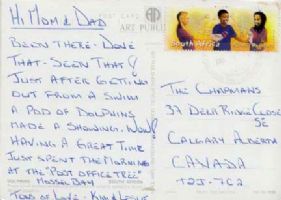 Hi Mom & Dad
Been There - Done
That - Seen That!
Just After Getting
Out From A Swim
A Pod Of Dolphins
Made A Showing. Wow!
Having A Great Time
Just Spent The Morning
At The "Post Office Tree"
Mossel Bay
Tons Of Love - Kim & Leslie
POST CARD
ART PUBLI
South Africa
The Chapmans
37 Deer Ridge Close
SE
Calgary Alberta
CANADA
T2J-7C2